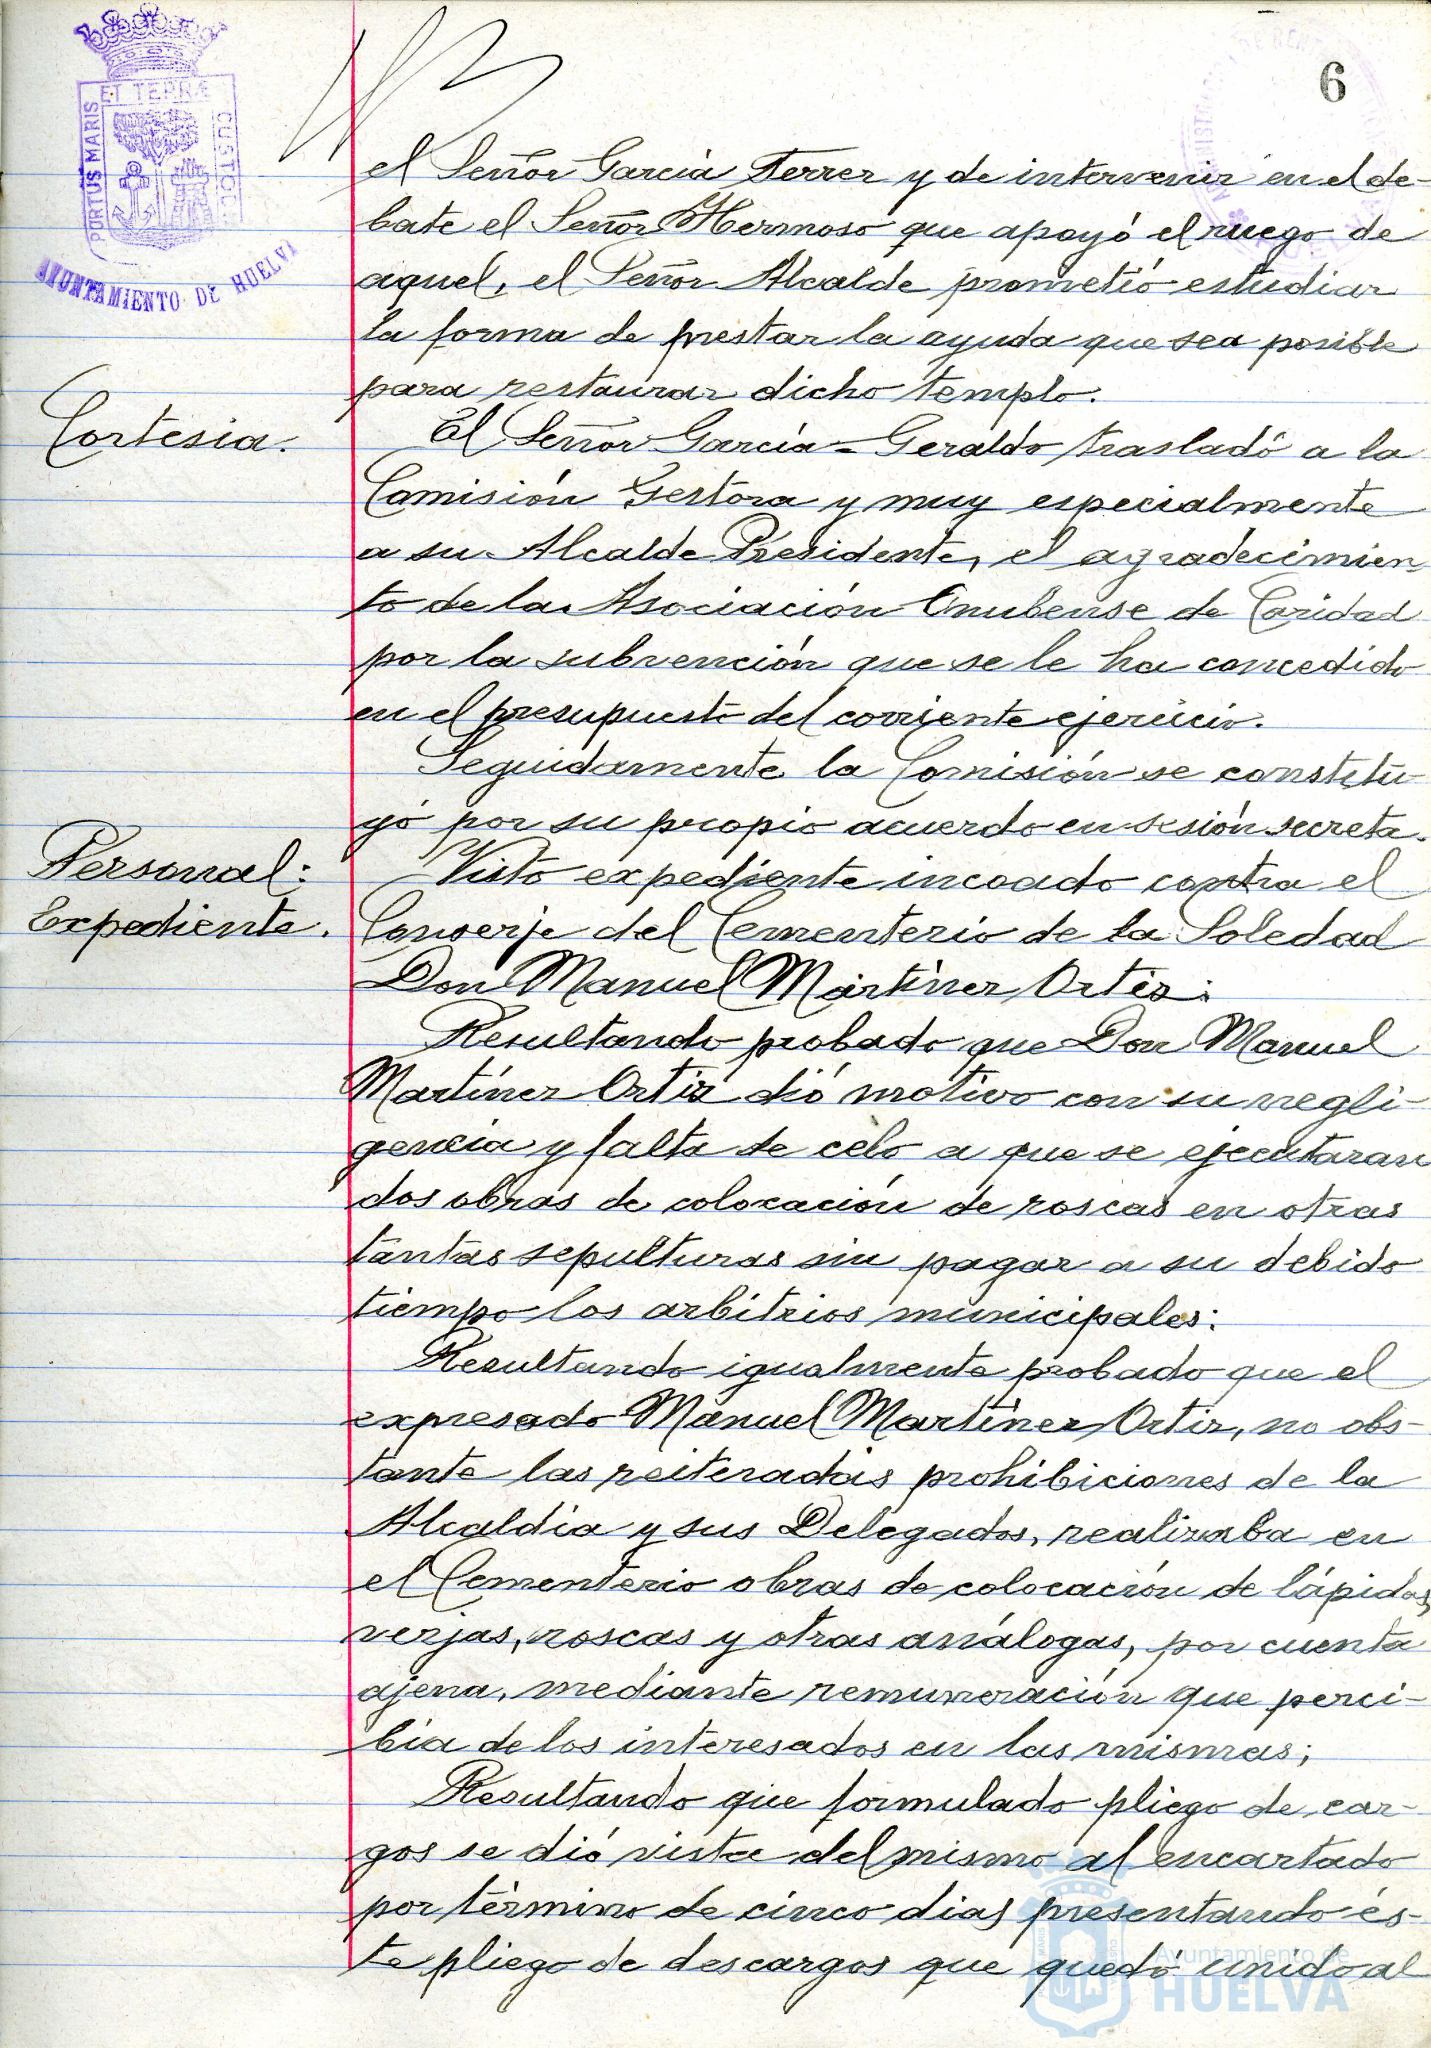 6
PORTUS MARIS ET TERRÆ CUSTODIA
AYUNTAMIENTO DE HUELVA
el Señor García Ferrer y de intervenir en el de-
bate el Señor Hermoso que apoyó el ruego de
aquel, el Señor Alcalde prometió estudiar
la forma de prestar la ayuda que sea posible
para restaurar dicho templo.
Cortesia.
El Señor García-Geraldo trasladó a la
Comisión Gestora y muy especialmente
a su Alcalde Presidente, el agradecimien-
to de la Asociación Onubense de Caridad
por la subvención que se le ha concedido
en el presupuesto del corriente ejercicio.
Seguidamente la Comisión se constitu-
yó por su propio acuerdo en sesión secreta.
Personal:
Expediente.
Visto expediente incoado contra el
Conserje del Cementerio de la Soledad
Don Manuel Martínez Ortiz:
Resultando probado que Don Manuel
Martínez Ortiz dió motivo con su negli-
gencia y falta de celo a que se ejecutaran
dos obras de colocación de roscas en otras
tantas sepulturas sin pagar a su debido
tiempo los arbitrios municipales:
Resultando igualmente probado que el
expresado Manuel Martínez Ortiz, no obs-
tante las reiteradas prohibiciones de la
Alcaldia y sus Delegados, realizaba en
el Cementerio obras de colocación de lápidas,
verjas, roscas y otras análogas, por cuenta
ajena, mediante remuneración que perci-
bia de los interesados en las mismas;
Resultando que formulado pliego de car-
gos se dió vista del mismo al encartado
por término de cinco dias presentando és-
te pliego de descargos que quedó unido al
Ayuntamiento de
HUELVA